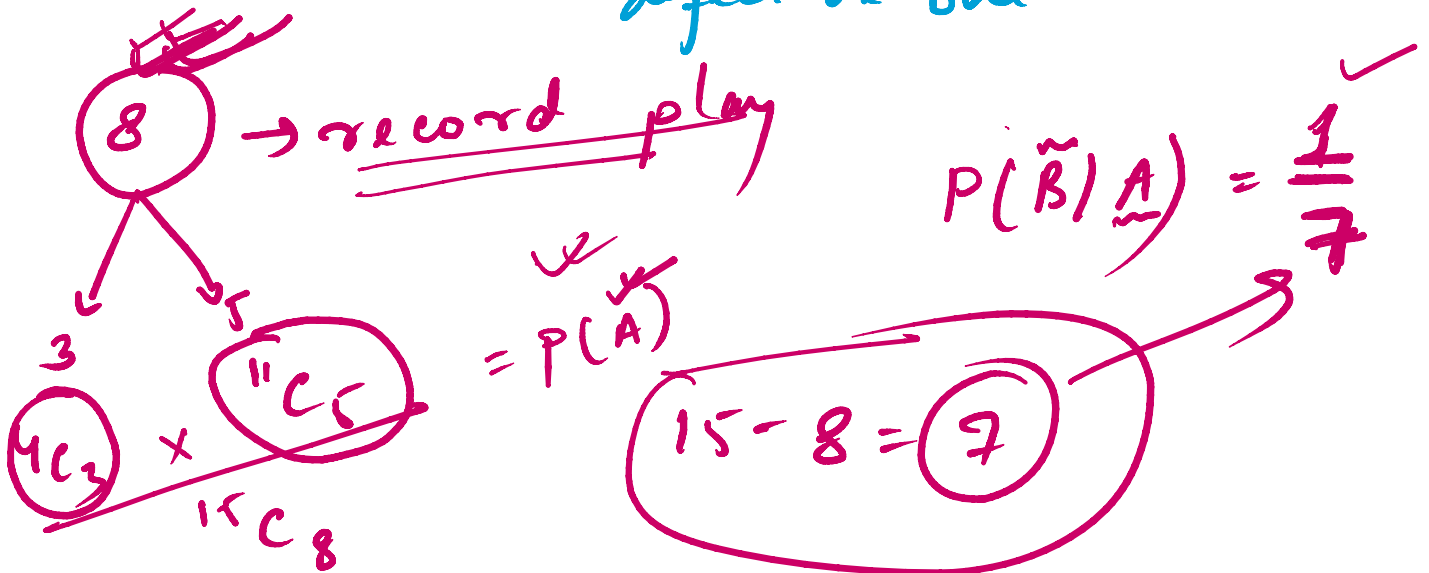 8 → record play
P(B̃/A) = 1/7
3 5
⁴C₃ × ¹¹C₅ = P(A)
¹⁵C₈
15 - 8 = 7